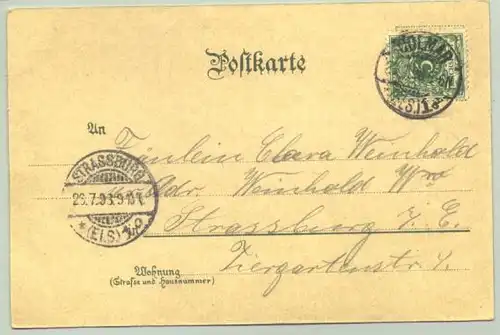 Postkarte
COLMAR
(ELS) 1d
An
Fräulein Clara Weinhold
STRASSBURG
23.7.9
(ELS) 1.
Adr. Weinhold Wwe
Strassburg i. E.
Tiergartenstr
Wohnung
(Strasse und Hausnummer)